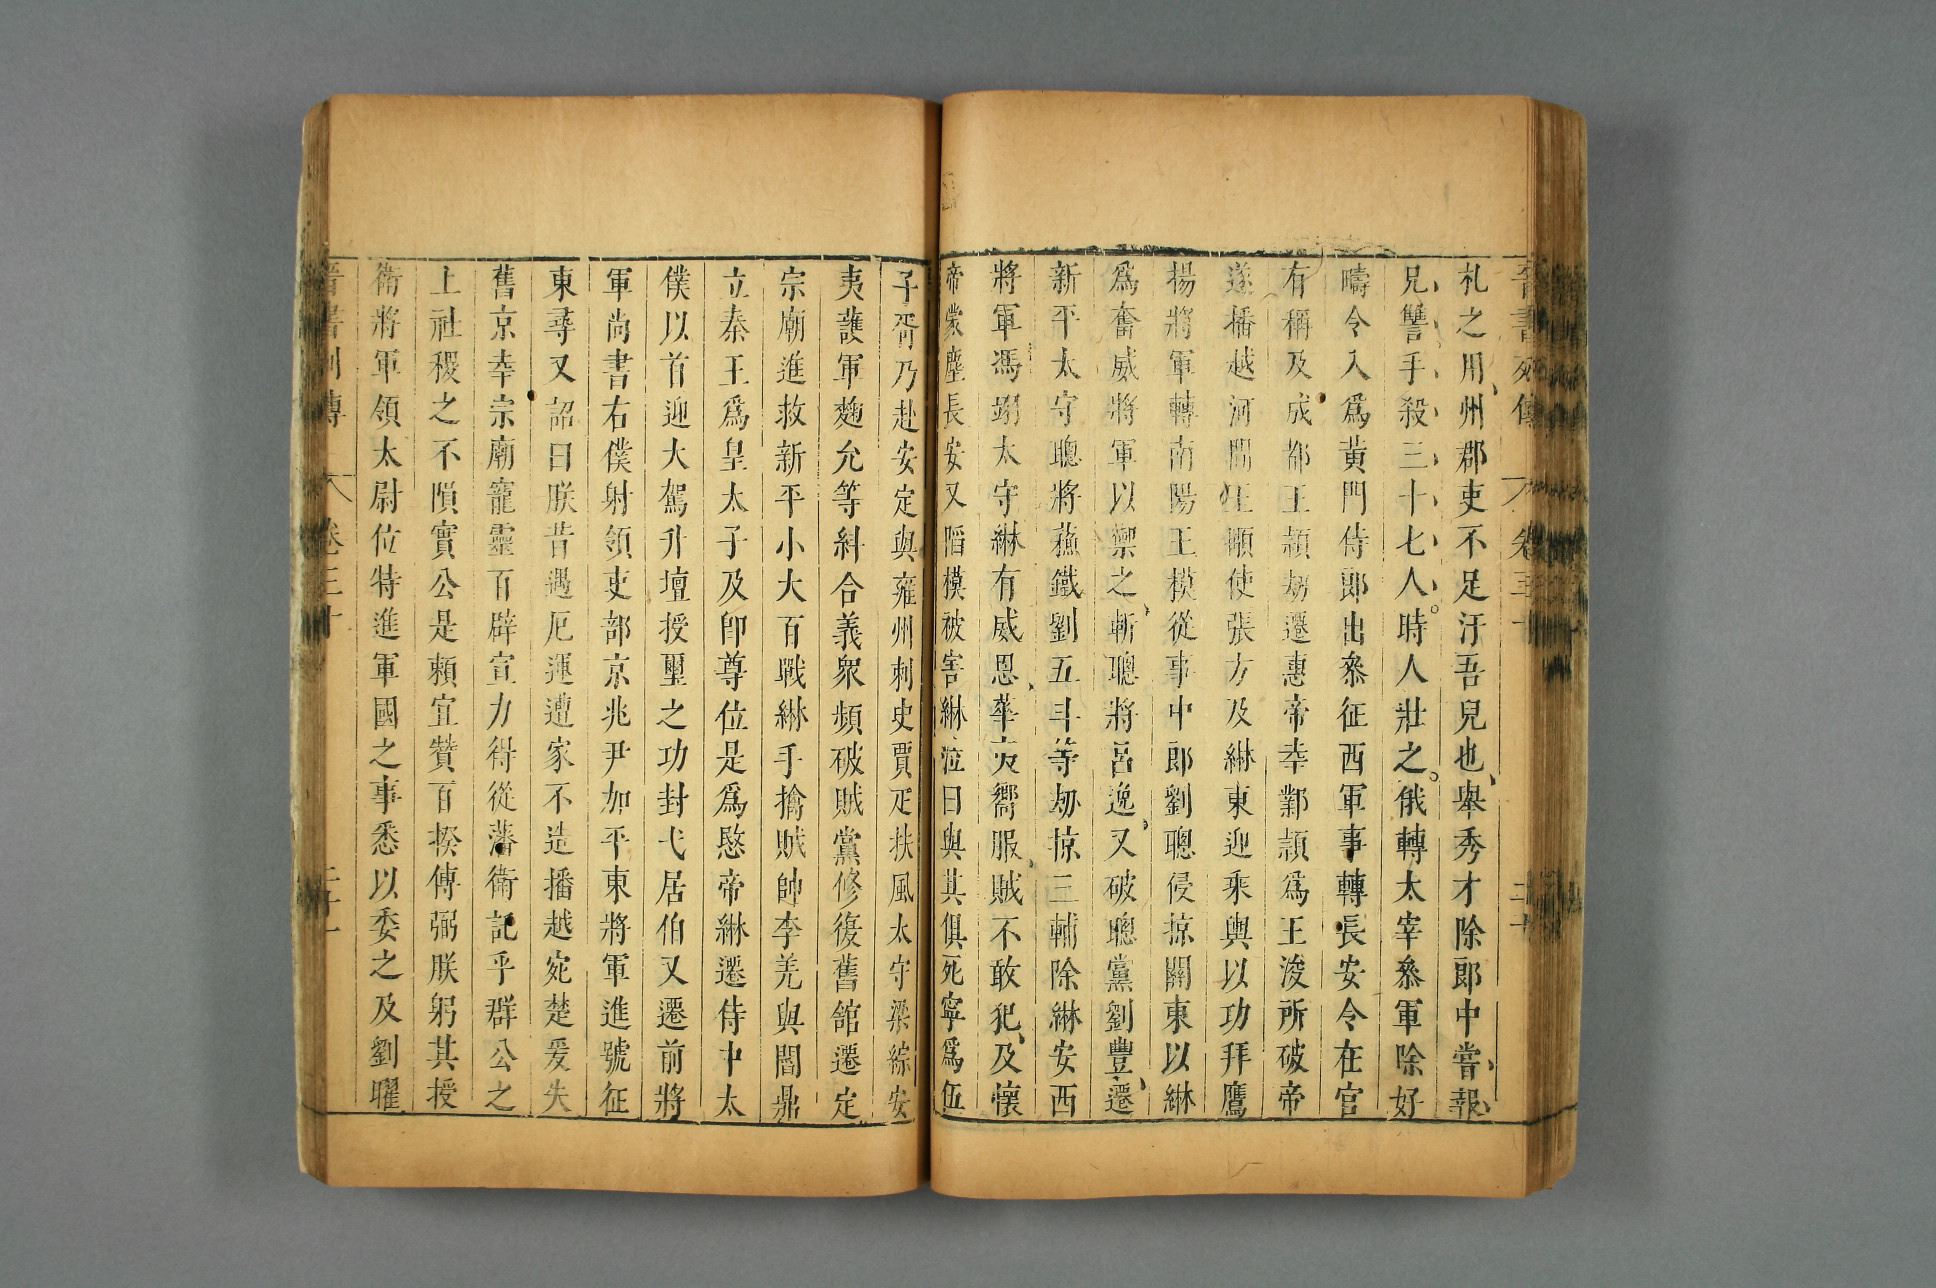 晉書列傳 卷三十 二十
札之用州郡吏不足汙吾兒也舉秀才除郎中嘗報
兄讐手殺三十七人時人壯之俄轉太宰叅軍除好
疇令入爲黃門侍郎出叅征西軍事轉長安令在官
有稱及成都王頴刼遷惠帝幸鄴頴爲王浚所破帝
遂播越河間王顒使張方及綝東迎乘輿以功拜鷹
揚將軍轉南陽王模從事中郎劉聰侵掠關東以綝
爲奮威將軍以禦之斬聰將呂逸又破聰黨劉豐遷
新平太守聰將蘓鐵劉五斗等刼掠三輔除綝安西
將軍馮翊太守綝有威恩華夷嚮服賊不敢犯及懷
帝蒙塵長安又陷模被害綝泣曰與其俱死寧爲伍
子胥乃赴安定與雍州刺史賈疋扶風太守梁綜安
夷護軍麴允等糾合義衆頻破賊黨修復舊館遷定
宗廟進救新平小大百戰綝手擒賊帥李羌與閻鼎
立秦王爲皇太子及卽尊位是爲愍帝綝遷侍中太
僕以首迎大駕升壇授璽之功封弋居伯又遷前將
軍尚書右僕射領吏部京兆尹加平東將軍進號征
東尋又詔曰朕昔遇厄運遭家不造播越宛楚爰失
舊京幸宗廟寵靈百辟宣力得從藩衛託乎群公之
上社稷之不隕實公是賴宜贊百揆傳弼朕躬其授
衛將軍領太尉位特進軍國之事悉以委之及劉曜
晉書列傳 卷三十 二十一